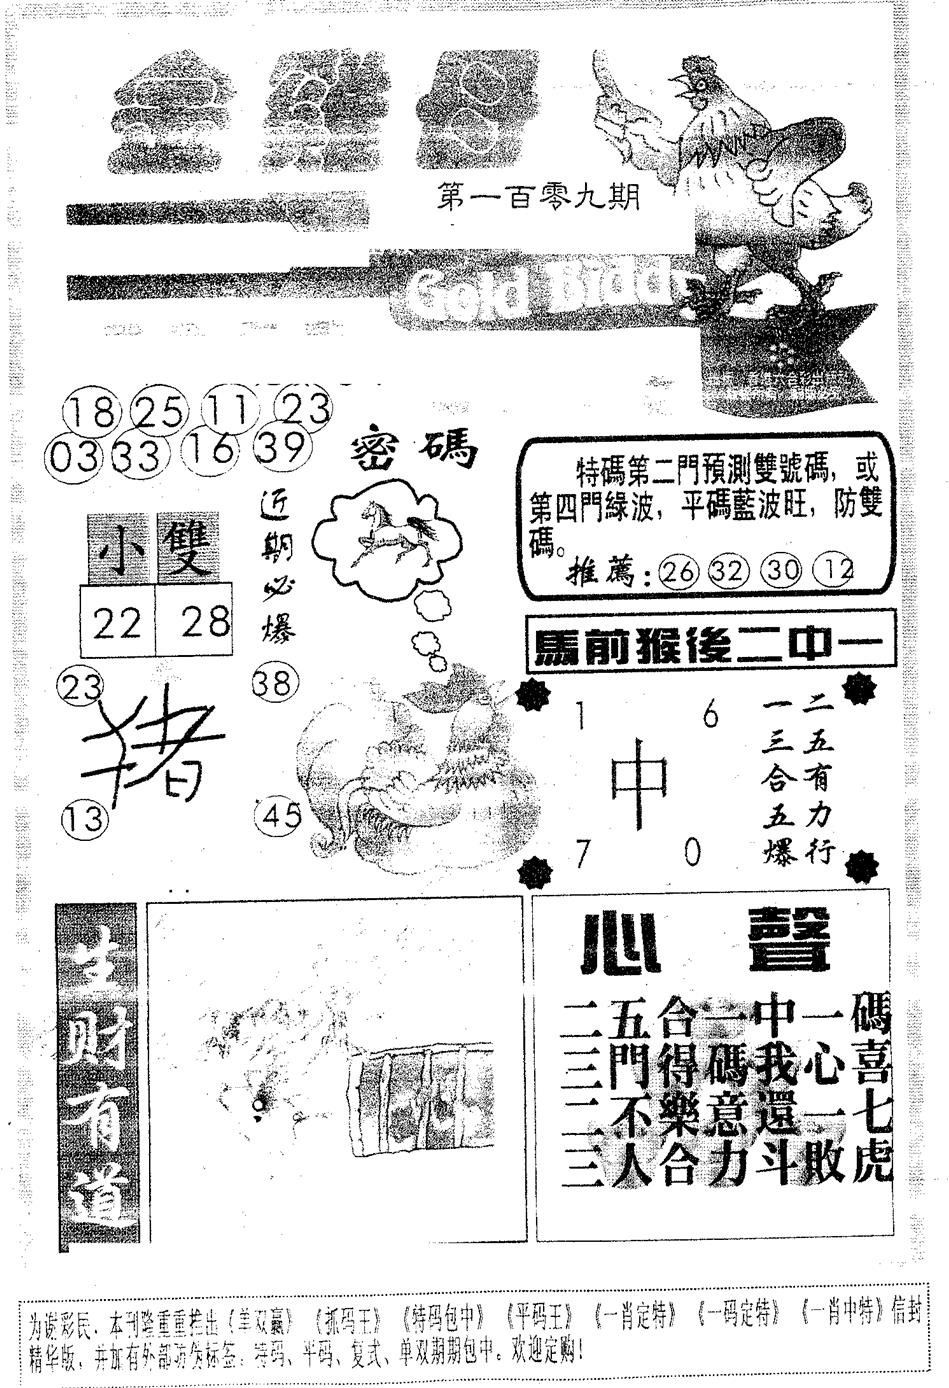 金雞母
第一百零九期
Gold Biddy
18 25 11 23
03 33 16 39
密碼
近期必爆
小 雙
22 28
23 38
猪
13 45
特碼第二門預測雙號碼，或
第四門綠波，平碼藍波旺，防雙
碼。
推薦：26 32 30 12
馬前猴後二中一
1 6
中
7 0
二五有力行
一三合五爆
生财有道
心聲
二五合一中一碼
三門得碼我心喜
二不樂意還一七
三人合力斗敗虎
为谢彩民，本刊隆重重推出《单双赢》《抓码王》《特码包中》《平码王》《一肖定特》《一码定特》《一肖中特》信封
精华版，并加有外部防伪标签，特码、平码、复式、单双期期包中。欢迎定购！